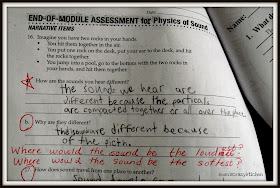 Date
END-OF-MODULE ASSESSMENT for Physics of Sound
NARRATIVE ITEMS
16. Imagine you have two rocks in your hands.
• You hit them together in the air.
• You put one rock on the desk, put your ear to the desk, and hit
the rocks together.
• You jump into a pool, go to the bottom with the two rocks in
your hands, and hit them together.
a. How are the sounds you hear different?
the sounds we hear are
different because the particals
are compacted together or all over the place
b. Why are they different?
the sounds are different because
of the pitch.
Where would the sound be the loudest?
Where would the sound be the softest?
17. How does sound travel from one place to another?
Name
1. What